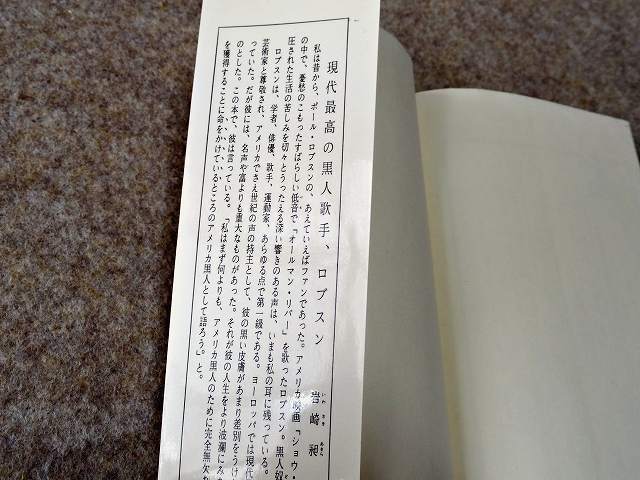 現代最高の黒人歌手、ロブスン
岩崎 昶
いわ さき あきら
私は昔から、ポール・ロブスンの、あえていえばファンであった。アメリカ映画『ショウ・
の中で、憂愁のこもったすばらしい低音で『オールマン・リバー』を歌ったロブスン。黒人奴
圧された生活の苦しみを切々とうったえる深い響きのある声は、いまも私の耳に残っている。
ロブスンは、学者、俳優、歌手、運動家、あらゆる点で第一級である。ヨーロッパでは現代
芸術家と尊敬され、アメリカでさえ世紀の声の持主として、彼の黒い皮膚があまり差別をうけ
っていた。だが彼には、名声や富よりも重大なものがあった。それが彼の人生をより波瀾にみち
のとした。この本で、彼は言っている。「私はまず何よりも、アメリカ黒人のために完全無欠な
を獲得することに命をかけているところのアメリカ黒人として語ろう。」と。